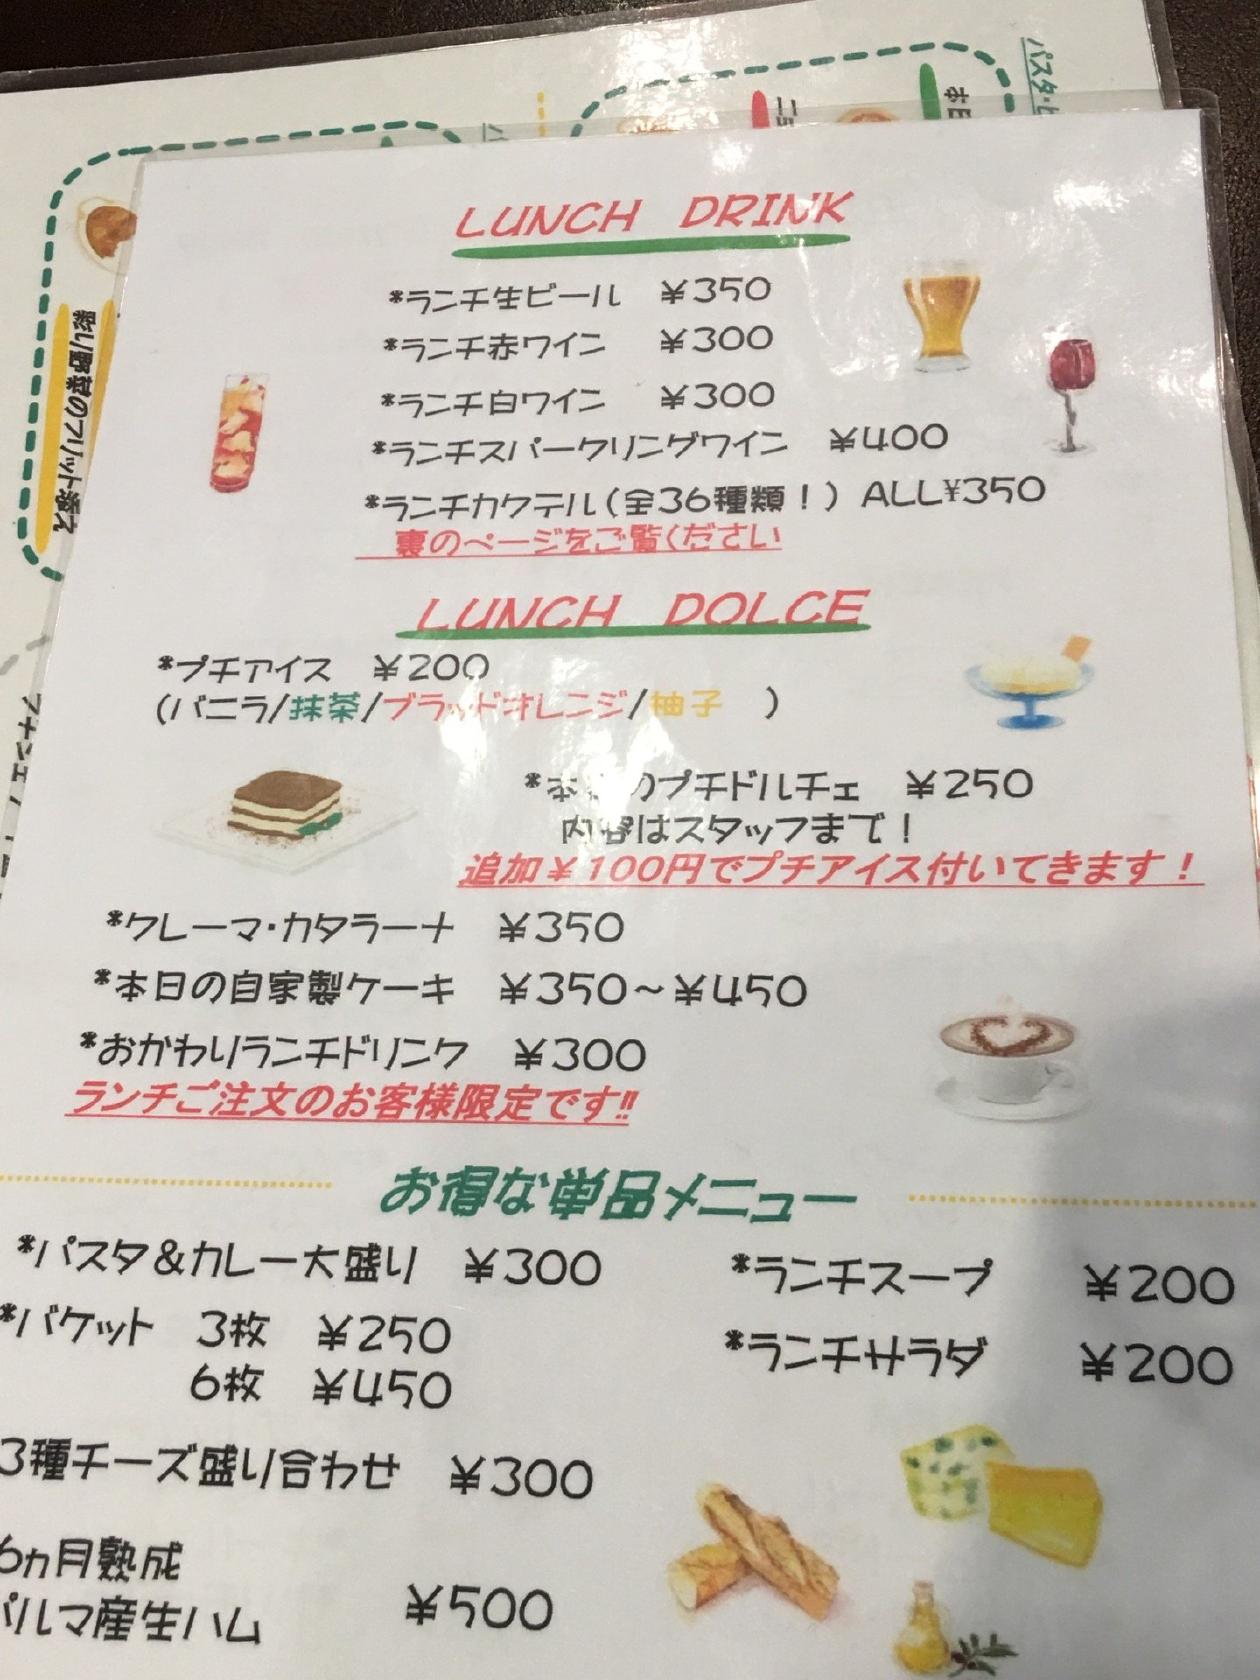 パスタ・
お日
彩り野菜のフリット添え
LUNCH DRINK
*ランチ生ビール ¥350
*ランチ赤ワイン ¥300
*ランチ白ワイン ¥300
*ランチスパークリングワイン ¥400
*ランチカクテル(全36種類!) ALL¥350
裏のページをご覧ください
LUNCH DOLCE
*プチアイス ¥200
(バニラ/抹茶/ブラッドオレンジ/柚子 )
*本日のプチドルチェ ¥250
内容はスタッフまで!
追加¥100円でプチアイス付いてきます!
*クレーマ・カタラーナ ¥350
*本日の自家製ケーキ ¥350~¥450
*おかわりランチドリンク ¥300
ランチご注文のお客様限定です!!
お得な単品メニュー
*パスタ&カレー大盛り ¥300
*バケット 3枚 ¥250
6枚 ¥450
3種チーズ盛り合わせ ¥300
6ヵ月熟成
パルマ産生ハム ¥500
*ランチスープ ¥200
*ランチサラダ ¥200